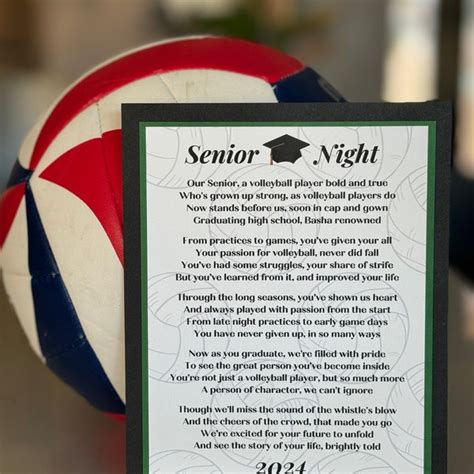 Senior Night
Our Senior, a volleyball player bold and true
Who's grown up strong, as volleyball players do
Now stands before us, soon in cap and gown
Graduating high school, Basha renowned
From practices to games, you've given your all
Your passion for volleyball, never did fall
You've had some struggles, your share of strife
But you've learned from it, and improved your life
Through the long seasons, you've shown us heart
And always played with passion from the start
From late night practices to early game days
You have never given up, in so many ways
Now as you graduate, we're filled with pride
To see the great person you've become inside
You're not just a volleyball player, but so much more
A person of character, we can't ignore
Though we'll miss the sound of the whistle's blow
And the cheers of the crowd, that made you go
We're excited for your future to unfold
And see the story of your life, brightly told
2024